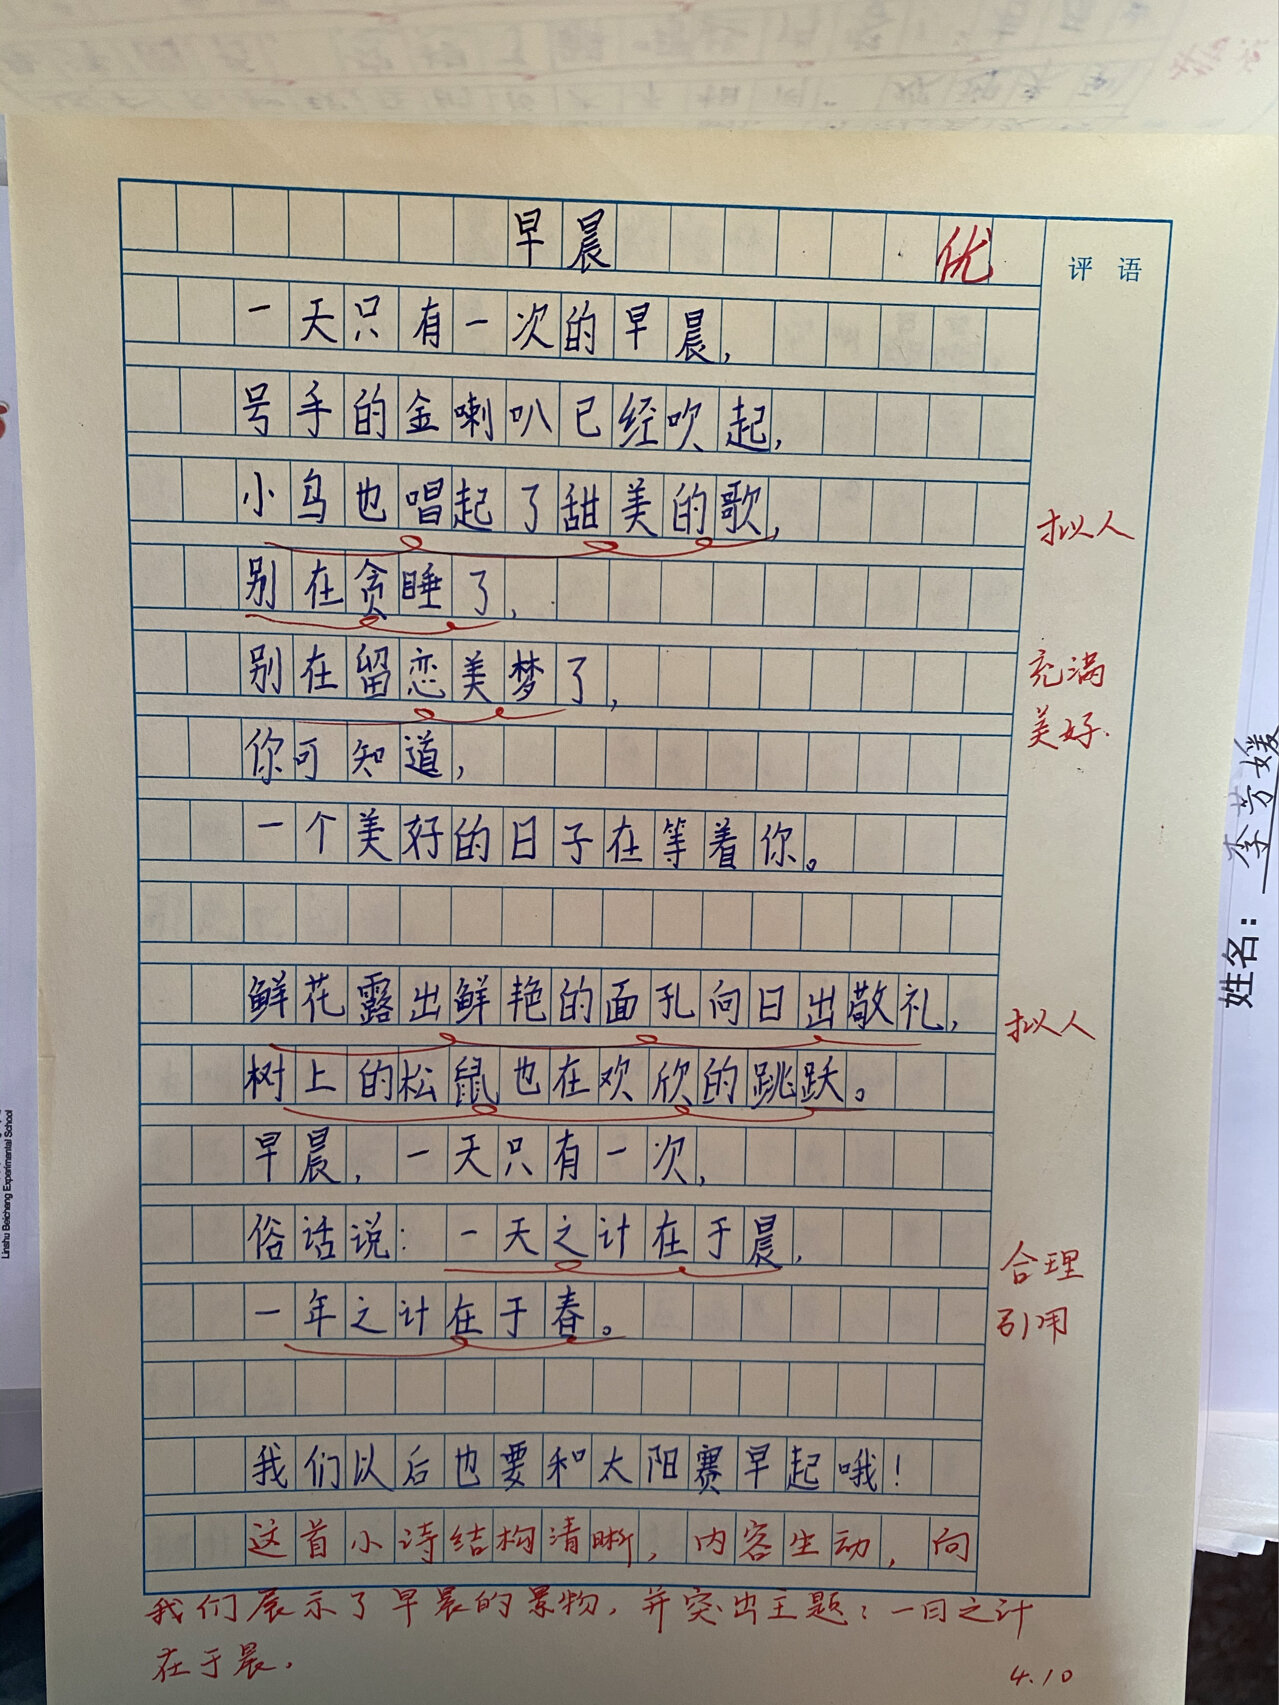 早晨
优
评语
一天只有一次的早晨，
号手的金喇叭已经吹起，
小鸟也唱起了甜美的歌，
拟人
别在贪睡了，
别在留恋美梦了，
充满
美好.
你可知道，
一个美好的日子在等着你。
鲜花露出鲜艳的面孔向日出敬礼，
拟人
树上的松鼠也在欢欣的跳跃。
早晨，一天只有一次，
俗话说：一天之计在于晨，
合理
引用
一年之计在于春。
我们以后也要和太阳赛早起哦！
这首小诗结构清晰，内容生动，向
我们展示了早晨的景物，并突出主题：一日之计
在于晨.
4.10
姓名：李芳媛
Linshu Beicheng Experimental School